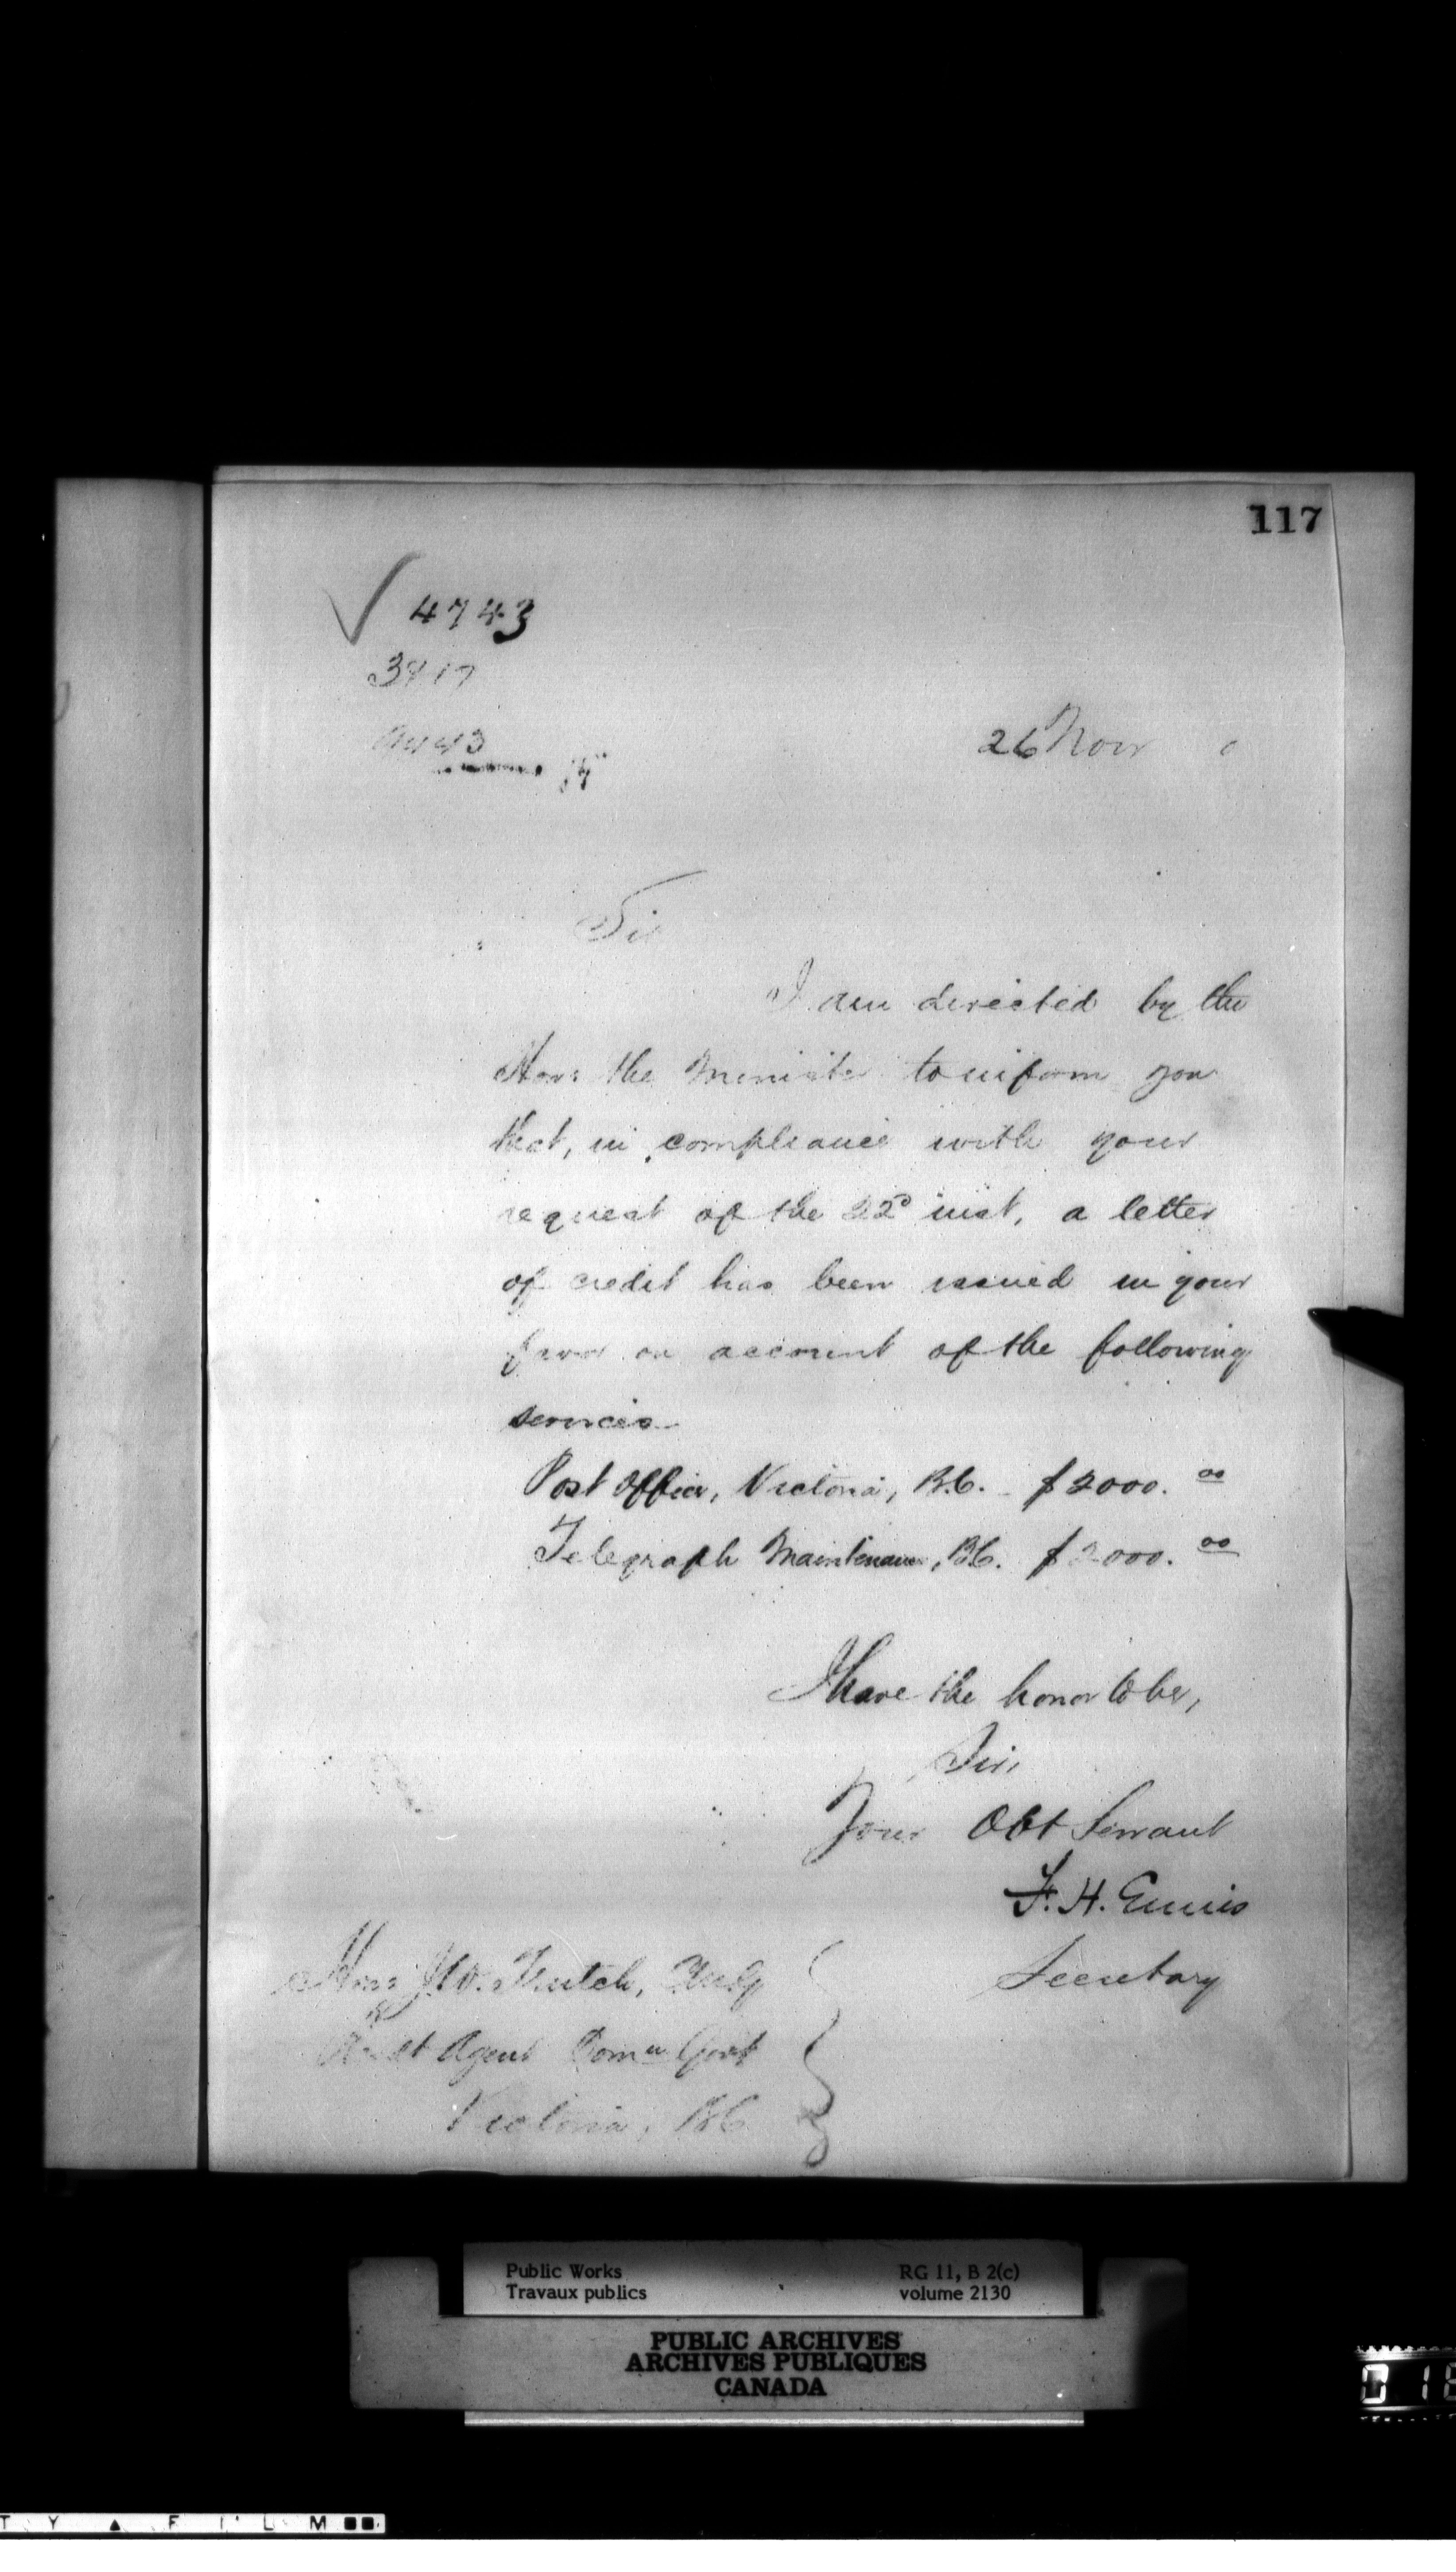 117
4743
3817
26 Novr 0
Sir
I am directed by the
Hon: the Minister to inform you
that, in compliance with your
request of the 22d inst, a letter
of credit has been issued in your
favor on account of the following
services
Post Office, Victoria, B.C. $2000.00
Telegraph Maintenance, B.C. $2000.00
I have the honor to be,
Sir,
Your Obt Servant
F. H. Ennis
Secretary
Hon: J.W. Trutch,
Agent Domn Govt
Victoria, B.C
Public Works
Travaux publics
RG 11, B 2(c)
volume 2130
PUBLIC ARCHIVES
ARCHIVES PUBLIQUES
CANADA
T Y ▲ F I L M